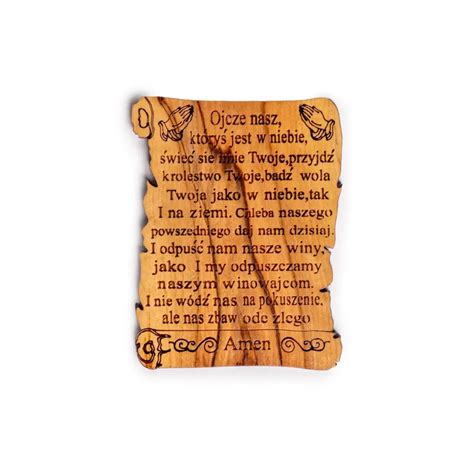 Ojcze nasz,
któryś jest w niebie,
świeć sie imie Twoje,przyjdź
krolestwo Twoje,badź wola
Twoja jako w niebie,tak
I na ziemi. Chleba naszego
powszedniego daj nam dzisiaj.
I odpuść nam nasze winy,
jako I my odpuszczamy
naszym winowajcom.
I nie wódź nas na pokuszenie,
ale nas zbaw ode zlego
Amen